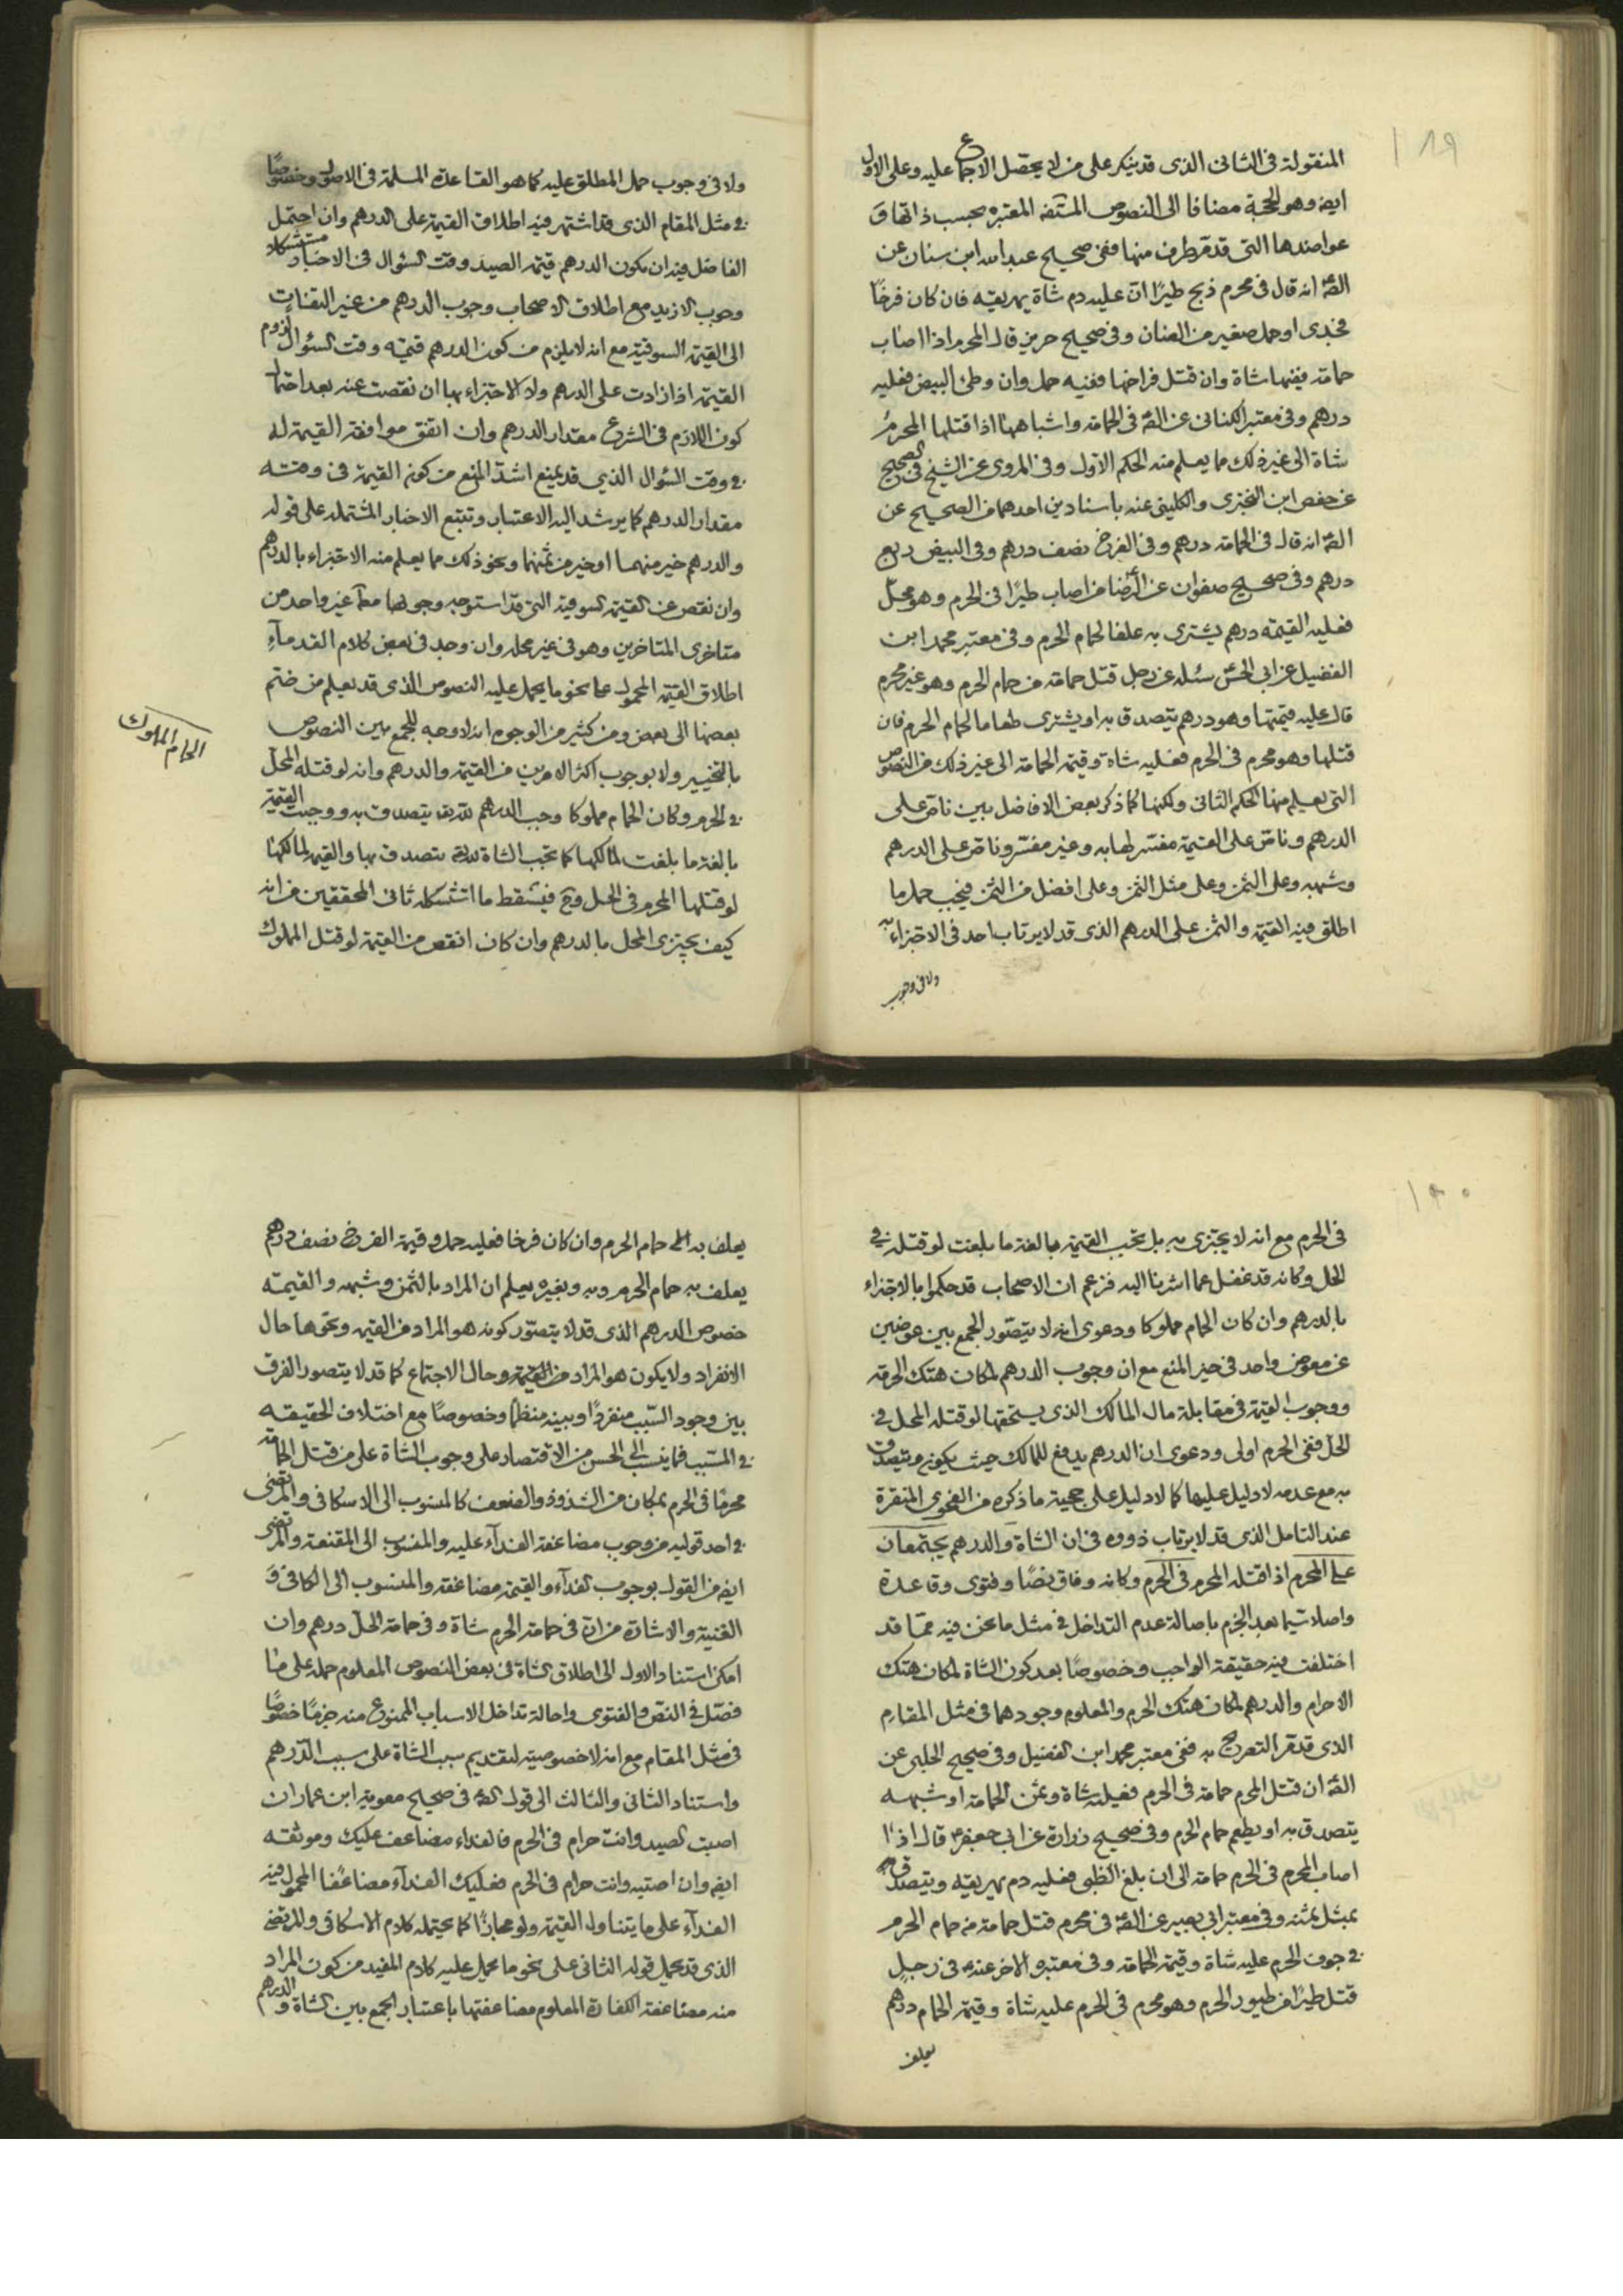 ١٨٩
المنقولة فى الثانى الذى قد ينكر على من لا يحصّل الاجماع عليه وعلى الاول
ايضه وهو الحجة مضافا الى النصوص المستفضه المعتبرة بحسب ذاتها وَ
عواضدها التى قد مرّ طرف منها ففى صحيح عبد الله ابن سنان عن
الصّه انه قال فى محرم ذبح طيرًا انّ عليه دم شاة يهريقه فان كان فرخًا
فجدى او حمل صغير من الضان وفى صحيح حريز قال المحرم اذا اصاب
حمامة ففيها شاة وان قتل فراخها ففيه حمل وان وطئ البيض فعليه
درهم وفى معتبر الكنانى عن الصّه فى الحمامة واشباهها اذا قتلها المحرمُ
شاة الى غير ذلك مما يعلم منه الحكم الاوّل وفى المروى عن الشيخ فى الصحيح
عن حفص ابن البخترى والكلينى عنه باسنادين احدهما الصحيح عن
الصّه انه قال فى الحمامة درهم وفى الفرخ نصف درهم وفى البيض ربع
درهم وفى صحيح صفوان عن الرّضا من اصاب طيرًا فى الحرم وهو محلّ
فعليه القيمة درهم يشترى به علفا لحمام الحرم وفى معتبر محمد ابن
الفضيل عن ابى الحسن سئله عن رجل قتل حمامة من حمام الحرم وهو غير محرم
قال عليه قيمتها وهو درهم يتصدق به او يشترى طعاما لحمام الحرم فان
قتلها وهو محرم فى الحرم فعليه شاة وقيمة الحمامة الى غير ذلك من النصوص
التى يعلم منها الحكم الثانى ولكنها كما ذكر بعض الافاضل بين ناصّ على
الدرهم وناصّ على القيمة مفسّر لها به وغير مفسّر وناصّ على الدرهم
وشبهه وعلى الثمن وعلى مثل الثمن وعلى افضل من الثمن فيجب حمل ما
اطلق فيه القيمة والثمن على الدرهم الذى قد لا يرتاب احد فى الاجتزاء به
ولا فى وجوب
ولا فى وجوب حمل المطلق عليه كما هو القاعدة المسلمة فى الاصول وخصوصًا
فى مثل المقام الذى قد اشتهر فيه اطلاق القيمة على الدرهم وان احتمل
الفاضل فيه ان يكون الدرهم قيمة الصيد وقت السؤال فى الاخبار مستشكلا
وجوب الازيد مع اطلاق الاصحاب وجوب الدرهم من غير التفات
الى القيمة السوقية مع انه لا يلزم من كون الدرهم قيمته وقت السؤال لزوم
القيمة اذا زادت على الدرهم ولا الاجتزاء بها ان نقصت عنه بعد احتمال
كون اللازم فى الشرع مقدار الدرهم وان اتفق موافقة القيمة له
فى وقت السئوال الذي قد يمنع اشدّ المنع من كون القيمة فى وقته
مقدار الدرهم كما يرشد اليه الاعتبار وتتبع الاخبار المشتملة على قوله
والدرهم خير منهما او خير من ثمنها ونحو ذلك مما يعلم منه الاجتزاء بالدرهم
وان نقص عن القيمة السوقية التى قد استوجه وجوبها معاً غير واحد من
متاخرى المتاخرين وهو فى غير محله وان وجد فى بعض كلام القدمآء
اطلاق القيمة المحمول على نحو ما يحمل عليه النصوص الذى قد يعلم من ضمّ
بعضها الى بعض ومن كثير من الوجوه انه لا وجه للجمع بين النصوص
بالتخيير ولا بوجوب اكثر الامرين من القيمة والدرهم وانه لو قتله المحلّ
الحمام المملوك
فى الحرم وكان الحمام مملوكا وجب الدرهم لله يتصدق به ووجبت القيمة
بالغة ما بلغت لمالكها كما تجب الشاة لله يتصدق بها والقيمة لمالكها
لو قتلها المحرم فى الحل وح فيسقط ما استشكله ثانى المحققين من انه
كيف يجتزى المحل بالدرهم وان كان انقص من القيمة لو قتل المملوك
١٩٠
فى الحرم مع انه لا يجتزى به بل تجب القيمة بالغة ما بلغت لو قتله فى
الحل وكانه قد غفل عما اشرنا اليه فزعم ان الاصحاب قد حكموا بالاجتزاء
بالدرهم وان كان الحمام مملوكا ودعوى انه لا يتصّور الجمع بين عوضين
عن معوض واحد فى حيز المنع مع ان وجوب الدرهم لمكان هتك الحرمة
ووجوب القيمة فى مقابلة مال المالك الذى يستحقها لو قتله المحل فى
الحلّ ففى الحرم اولى ودعوى ان الدرهم يدفع للمالك حيث يكون ويتصدق
به مع عدمه لا دليل عليها كما لا دليل على حجية ما ذكره من الفحوى المتقررة
عند التامل الذى قد لا يرتاب ذووه فى ان الشاة والدرهم يجتمعان
على المحرم اذا قتله المحرم فى الحرم وكانه وفاق نصًا وفتوى وقاعدة
واصلا سيّما بعد الجزم باصالة عدم التداخل فى مثل ما نحن فيه ممّا قد
اختلفت فيه حقيقة الواجب وخصوصًا بعد كون الشاة لمكان هتك
الاحرام والدرهم لمكان هتك الحرم والمعلوم وجودهما فى مثل المقام
الذى قد مرّ التصريح به ففى معتبر محمد ابن الفضيل وفى صحيح الحلبى عن
الصّه ان قتل المحرم حمامة فى الحرم فعليه شاة وثمن الحمامة او شبهه
يتصدق به او يطعم حمام الحرم وفى صحيح زرارة عن ابى جعفر ع قال اذا
اصاب المحرم فى الحرم حمامة الى ان بلغ الظبى فعليه دم يهريقه ويتصدق
بمثل ثمنه وفى معتبر ابى بصير عن الصّه فى محرم قتل حمامة من حمام الحرم
فى جوف الحرم عليه شاة وقيمة الحمامة وفى معتبره الاخر عنه فى رجلٍ
قتل طيرًا من طيور الحرم وهو محرم فى الحرم عليه شاة وقيمة الحمام درهم
يعلف
يعلف به حمام الحرم وان كان فرخا فعليه حمل وقيمة الفرخ نصف درهم
يعلف به حمام الحرم وبه وبغيره يعلم ان المراد بالثمن وشبهه والقيمة
خصوص الدرهم الذى قد لا يتصوّر كونه هو المراد من القيمة ونحوها حال
الانفراد ولا يكون هو المراد من القيمة وحال الاجتماع كما قد لا يتصور الفرق
بين وجود السّبب منفردًا وبينه منظما وخصوصًا مع اختلاف الحقيقة
فى المسّبب فما ينسب الى الحسن من الاقتصار على وجوب الشاة على من قتل الحمامة
محرمًا فى الحرم بمكان من الشذوذ والضعف كالمنسوب الى الاسكافى والمرتضى
فى احد قوليه من وجوب مضاعفة الفدآء عليه والمنسوب الى المقنعة والمرتضى
ايضه من القول بوجوب الفدآء والقيمة مضاعفة والمنسوب الى الكافى وَ
الغنية والاشارة من انّ فى حمامة الحرم شاة وفى حمامة الحلّ درهم وان
امكن استناد الاول الى اطلاق الشاة فى بعض النصوص المعلوم حمله على ما
فصّل فى النصّ والفتوى واحالة تداخل الاسباب الممنوع منه جزمًا خصُوصًا
فى مثل المقام مع انه لا خصوصية لتقديم سبب الشاة على سبب الدّرهم
واستناد الثانى والثالث الى قوله الصّه فى صحيح معوية ابن عمار ان
اصبت الصيد وانت حرام فى الحرم فالفداء مضاعف عليك وموثقه
ايضه وان اصبته وانت حرام فى الحرم فعليك الفدآء مضاعفًا المحمول فيه
الفدآء على ما يتناول القيمة ولو مجازًا كما يحتمله كلام الاسكافى والمرتضى
الذى قد يحمل قوله الثانى على نحو ما يحمل عليه كلام المفيد من كون المراد
منه مضاعفة الكفارة المعلوم مضاعفتها باعتبار الجمع بين الشاة والدرهم